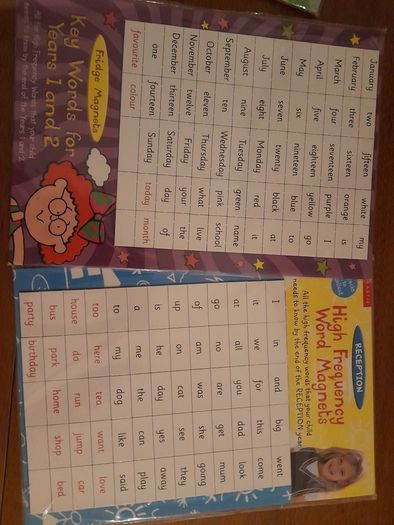 January two fifteen white my
February three sixteen orange is
March four seventeen purple I
April five eighteen yellow go
May six nineteen blue to
June seven twenty black at
July eight Monday red it
August nine Tuesday green name
September ten Wednesday pink school
October eleven Thursday what live
November twelve Friday your the
December thirteen Saturday day of
one fourteen Sunday today month
favourite colour
Fridge Magnets
Key Words for
Years 1 and 2
All the High Frequency Words that your child
needs to know by the end of the Years 1 and 2.
RECEPTION
High Frequency
Word Magnets
All the high frequency words that your child
needs to know by the end of the RECEPTION year
I in and big went
it we for this come
at all you dad look
go no are get mum
of am was she going
up on cat see they
is he day yes away
a me the can play
to my dog like said
too here tea want love
house do run jump car
bus park home shop bed
party birthday